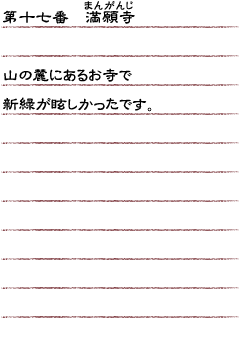 第十七番　満願寺
まんがんじ
山の麓にあるお寺で
新緑が眩しかったです。